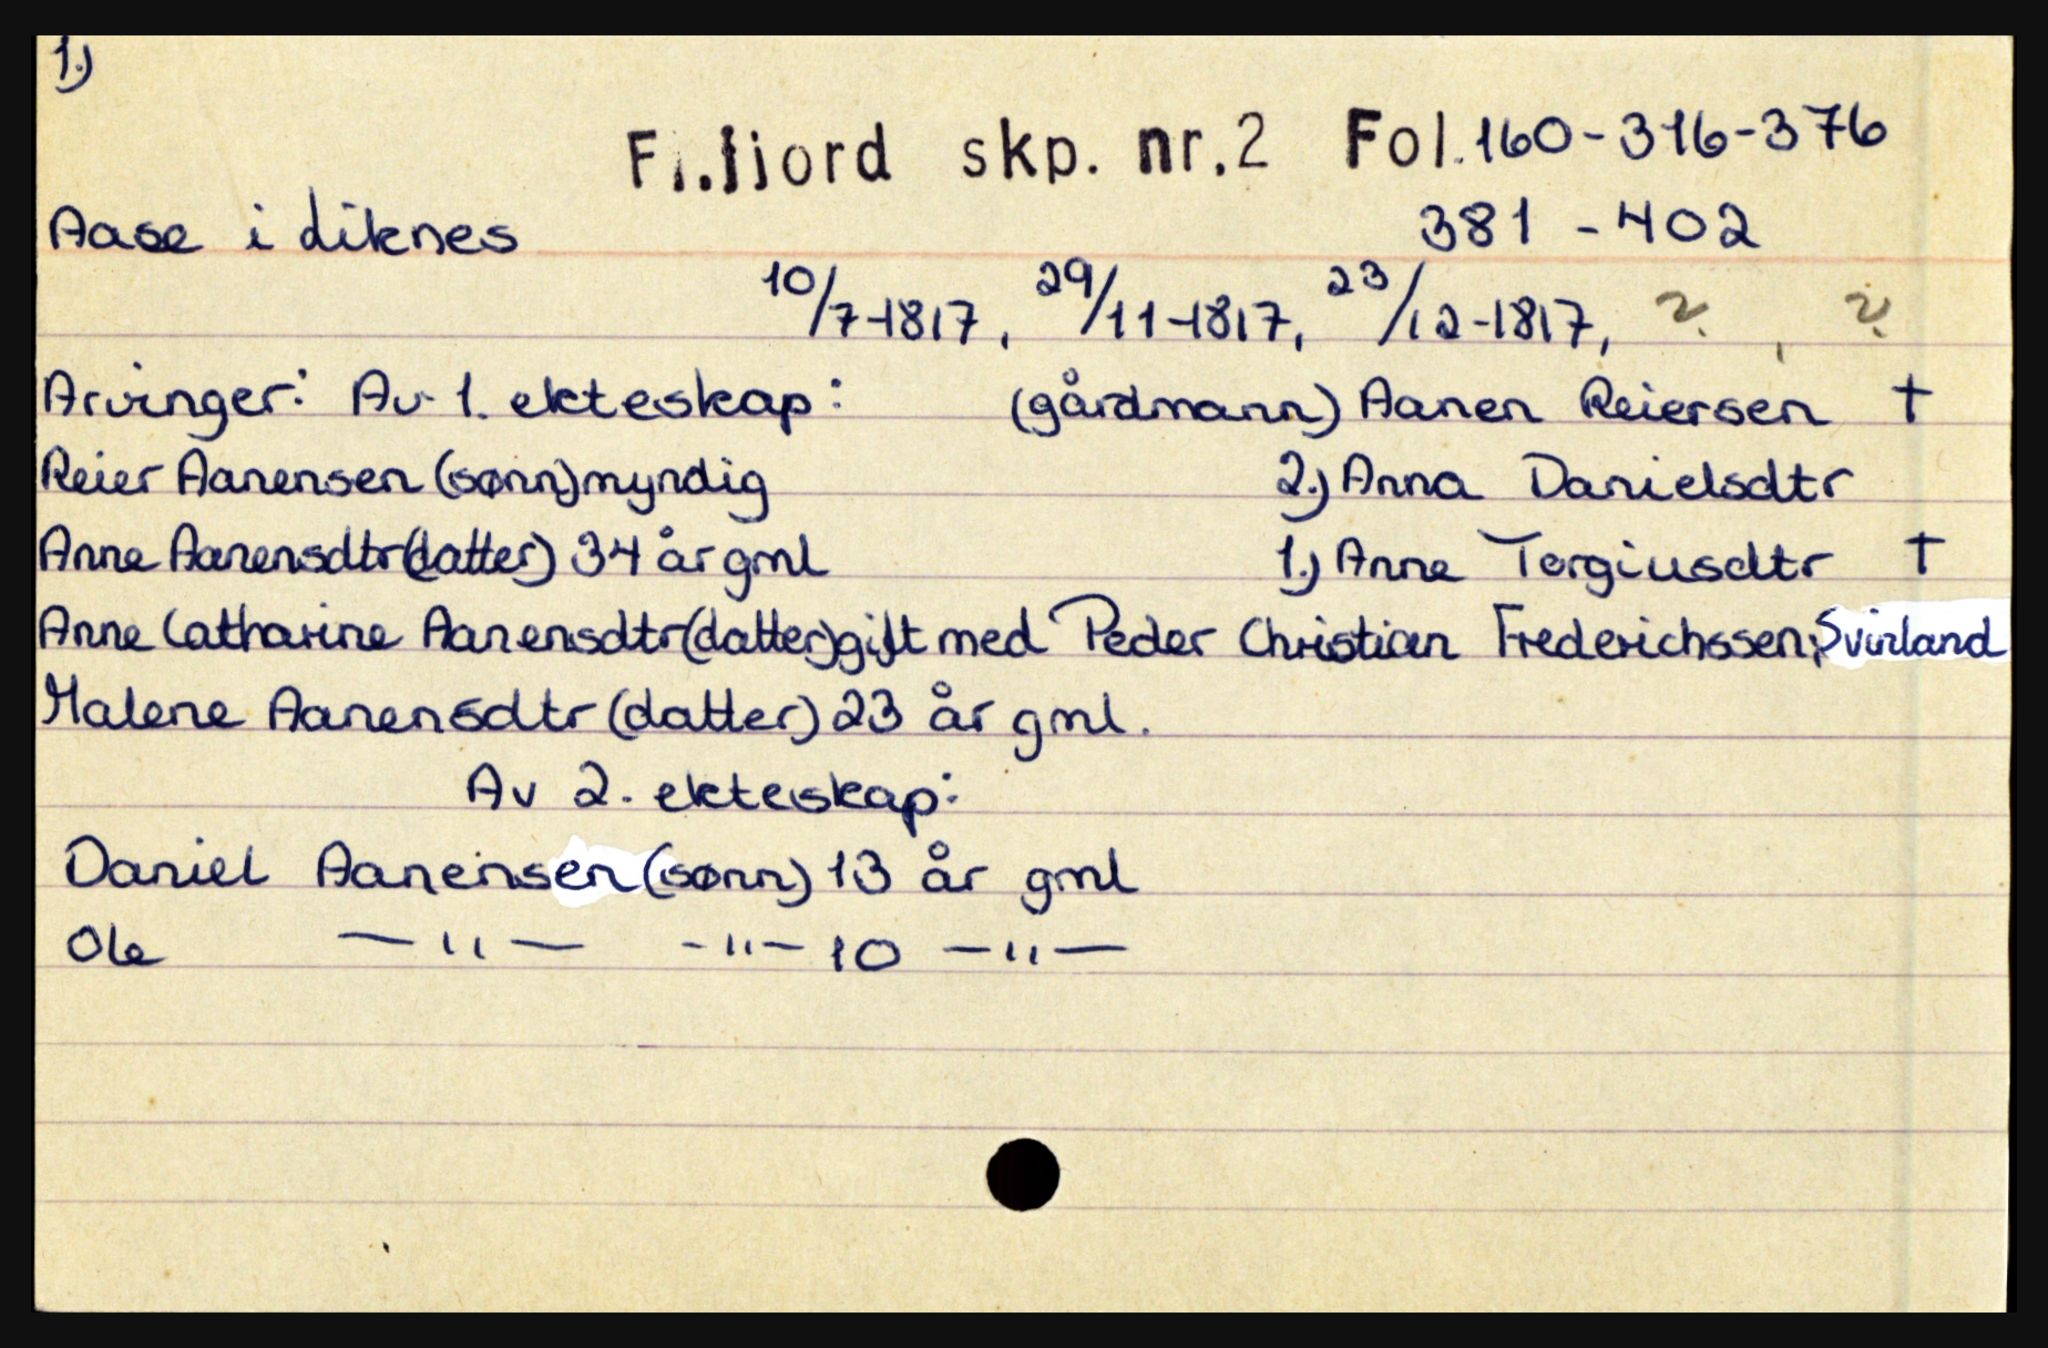 1.)
Fl.fjord skp. nr.2 Fol.160-316-376
Aase i Liknes 381-402
10/7-1817, 29/11-1817, 23/12-1817, ?, ?
Arvinger: Av 1. ekteskap: (gårdmann) Aanen Reiersen †
Reier Aanensen (sønn) myndig 2.) Anna Danielsdtr
Anne Aanensdtr (datter) 34 år gml 1.) Anne Torgiusdtr †
Anne Catharine Aanensdtr (datter) gift med Peder Christian Frederichssen, Svinland
Malene Aanensdtr (datter) 23 år gml.
Av 2. ekteskap:
Daniel Aanensen (sønn) 13 år gml
Ole —"— -"- 10 —"—